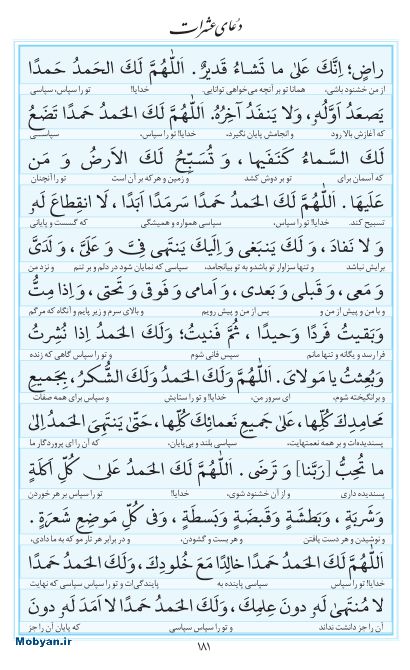 دعای عشرات
راضٍ؛ اِنَّكَ عَلىٰ ما تَشاءُ قَديرٌ. اَللّٰهُمَّ لَكَ الحَمدُ حَمدًا
از من خشنود باشی، همانا تو بر آنچه می‌خواهی توانایی. خدایا! تو را سپاس، سپاسی
يَصعَدُ اَوَّلُهُ، وَلا يَنفَدُ آخِرُهُ. اَللّٰهُمَّ لَكَ الحَمدُ حَمدًا تَضَعُ
که آغازش بالا رود و انجامش پایان نگیرد. خدایا! تو را سپاس، سپاسی
لَكَ السَّماءُ كَنَفَيها، وَ تُسَبِّحُ لَكَ الاَرضُ وَ مَن
که آسمان برای تو بر دوش کشد و زمین و هر که بر آن است تو را آنچنان
عَلَيها. اَللّٰهُمَّ لَكَ الحَمدُ حَمدًا سَرمَدًا اَبَدًا، لَا انقِطاعَ لَهُ
تسبیح کند. خدایا! تو را سپاس، سپاسی همواره و همیشگی که گسست و پایانی
وَ لا نَفادَ، وَ لَكَ يَنبَغی وَ اِلَيكَ يَنتَهی فِیَّ وَ عَلَیَّ، وَ لَدَیَّ
برایش نباشد و تنها سزاوار تو باشد و به تو بیانجامد، سپاسی که نمایان شود در دلم و بر تنم و نزد من
وَ مَعی، وَ قَبلی وَ بَعدی، وَ اَمامی وَ فَوقی وَ تَحتی، وَ اِذا مِتُّ
و با من و پیش از من و پس از من و پیش رویم و بالای سرم و زیر پایم و آنگاه که مرگم
وَبَقيتُ فَردًا وَحيدًا، ثُمَّ فَنيتُ؛ وَلَكَ الحَمدُ اِذا نُشِرتُ
فرا رسد و یگانه و تنها مانم سپس فانی شوم و تو را سپاس گاهی که زنده
وَبُعِثتُ يا مَولایَ. اَللّٰهُمَّ وَلَكَ الحَمدُ وَلَكَ الشُّكرُ، بِجَميعِ
و برانگیخته شوم، ای سرور من. خدایا! و تو را ستایش و سپاس برای همه صفات
مَحامِدِكَ كُلِّها، عَلىٰ جَميعِ نَعمائِكَ كُلِّها، حَتّىٰ يَنتَهِیَ الحَمدُ اِلىٰ
پسندیده‌ات و بر همه نعمتهایت، سپاسی بلند و بی‌پایان، که آن را ای پروردگار ما
ما تُحِبُّ [رَبَّنا] وَ تَرضىٰ. اَللّٰهُمَّ لَكَ الحَمدُ عَلىٰ كُلِّ اَكلَةٍ
پسندیده داری و از آن خشنود شوی، خدایا! تو را سپاس بر هر خوردن
وَشَربَةٍ، وَبَطشَةٍ وَقَبضَةٍ وَبَسطَةٍ، وَفی كُلِّ مَوضِعِ شَعرَةٍ.
و نوشیدن و هر دست یافتن و هر بست و گشودن، و در برابر هر تار مو که به ما دادی،
اَللّٰهُمَّ لَكَ الحَمدُ حَمدًا خالِدًا مَعَ خُلودِكَ، وَلَكَ الحَمدُ حَمدًا
خدایا! تو را سپاس سپاسی پاینده به پایندگی‌ات و تو را سپاس سپاسی که نهایت
لا مُنتَهىٰ لَهُ دونَ عِلمِكَ، وَلَكَ الحَمدُ حَمدًا لا اَمَدَ لَهُ دونَ
آن را جز دانشت نداند و تو را سپاس سپاسی که پایان آن را جز
۱۸۱
Mobyan.ir